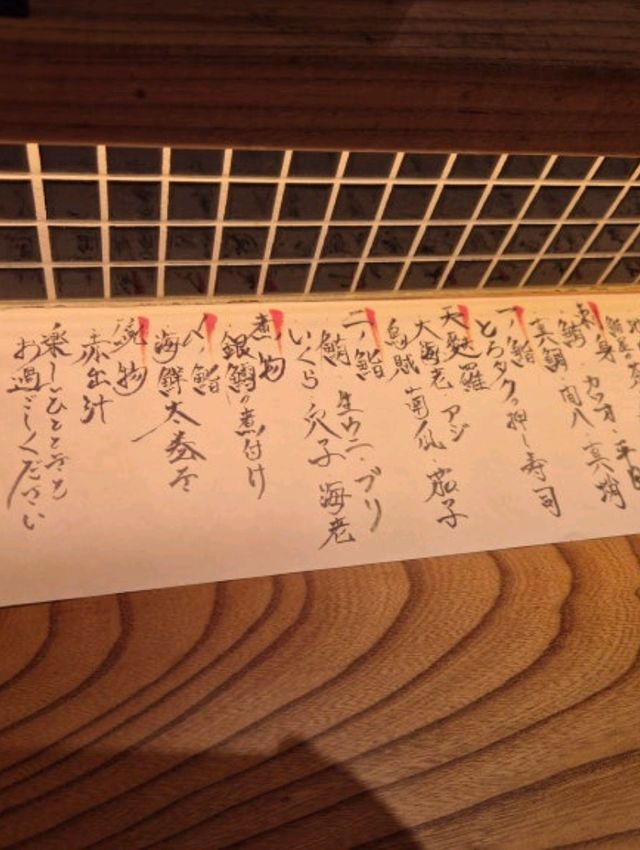 刺身 カツオ・平目
鯖 間八 真蛸
真鯛
一ノ鮨
とろタクの押し寿司
天麩羅
大海老 アジ
烏賊 南瓜 茄子
二ノ鮨
鮪 生ウニ・ブリ
いくら 穴子 海老
煮物
銀鱈の煮付け
〆ノ鮨
海鮮太巻き
椀物
赤出汁
楽しいひとときを
お過ごしください